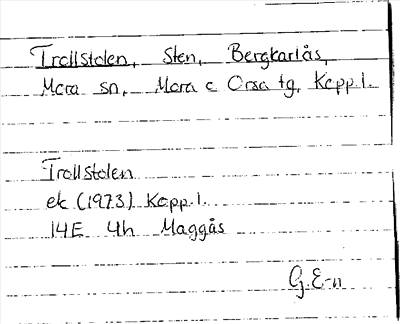 Trollstolen, Sten, Bergkarlås,
Mora sn, Mora o Orsa tg, Kopp.l.
Trollstolen
ek (1973) Kopp.l.
14E 4h Maggås
G.E-n